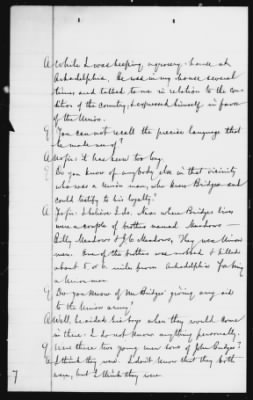 A While I was keeping a grocery-house at
Arkadelphia. He was in my house several
times and talked to me in relation to the con-
dition of the country, & expressed himself in favor
of the Union.
Q You can not recall the precise language that
he made use of?
A No sir: it has been too long.
Q Do you know of anybody else in that vicinity
who was a Union man, who knew Bridges and
could testify to his loyalty?
A Yes sir I believe I do. Near where Bridges lives
were a couple of brothers named Meadows—
Billy Meadows & J. C. Meadows. They were Union
men. One of the brothers was robbed & killed
about 5 or 6 miles from Arkadelphia for being
a Union man.
Q Do you know of Mr Bridges' giving any aid
to the Union army?
A Well he aided his boys when they would come
in there. I do not know anything personally.
Q Were there two young men sons of John Bridges?
A I think they were. I don't know that they both
were, but I think they were
7